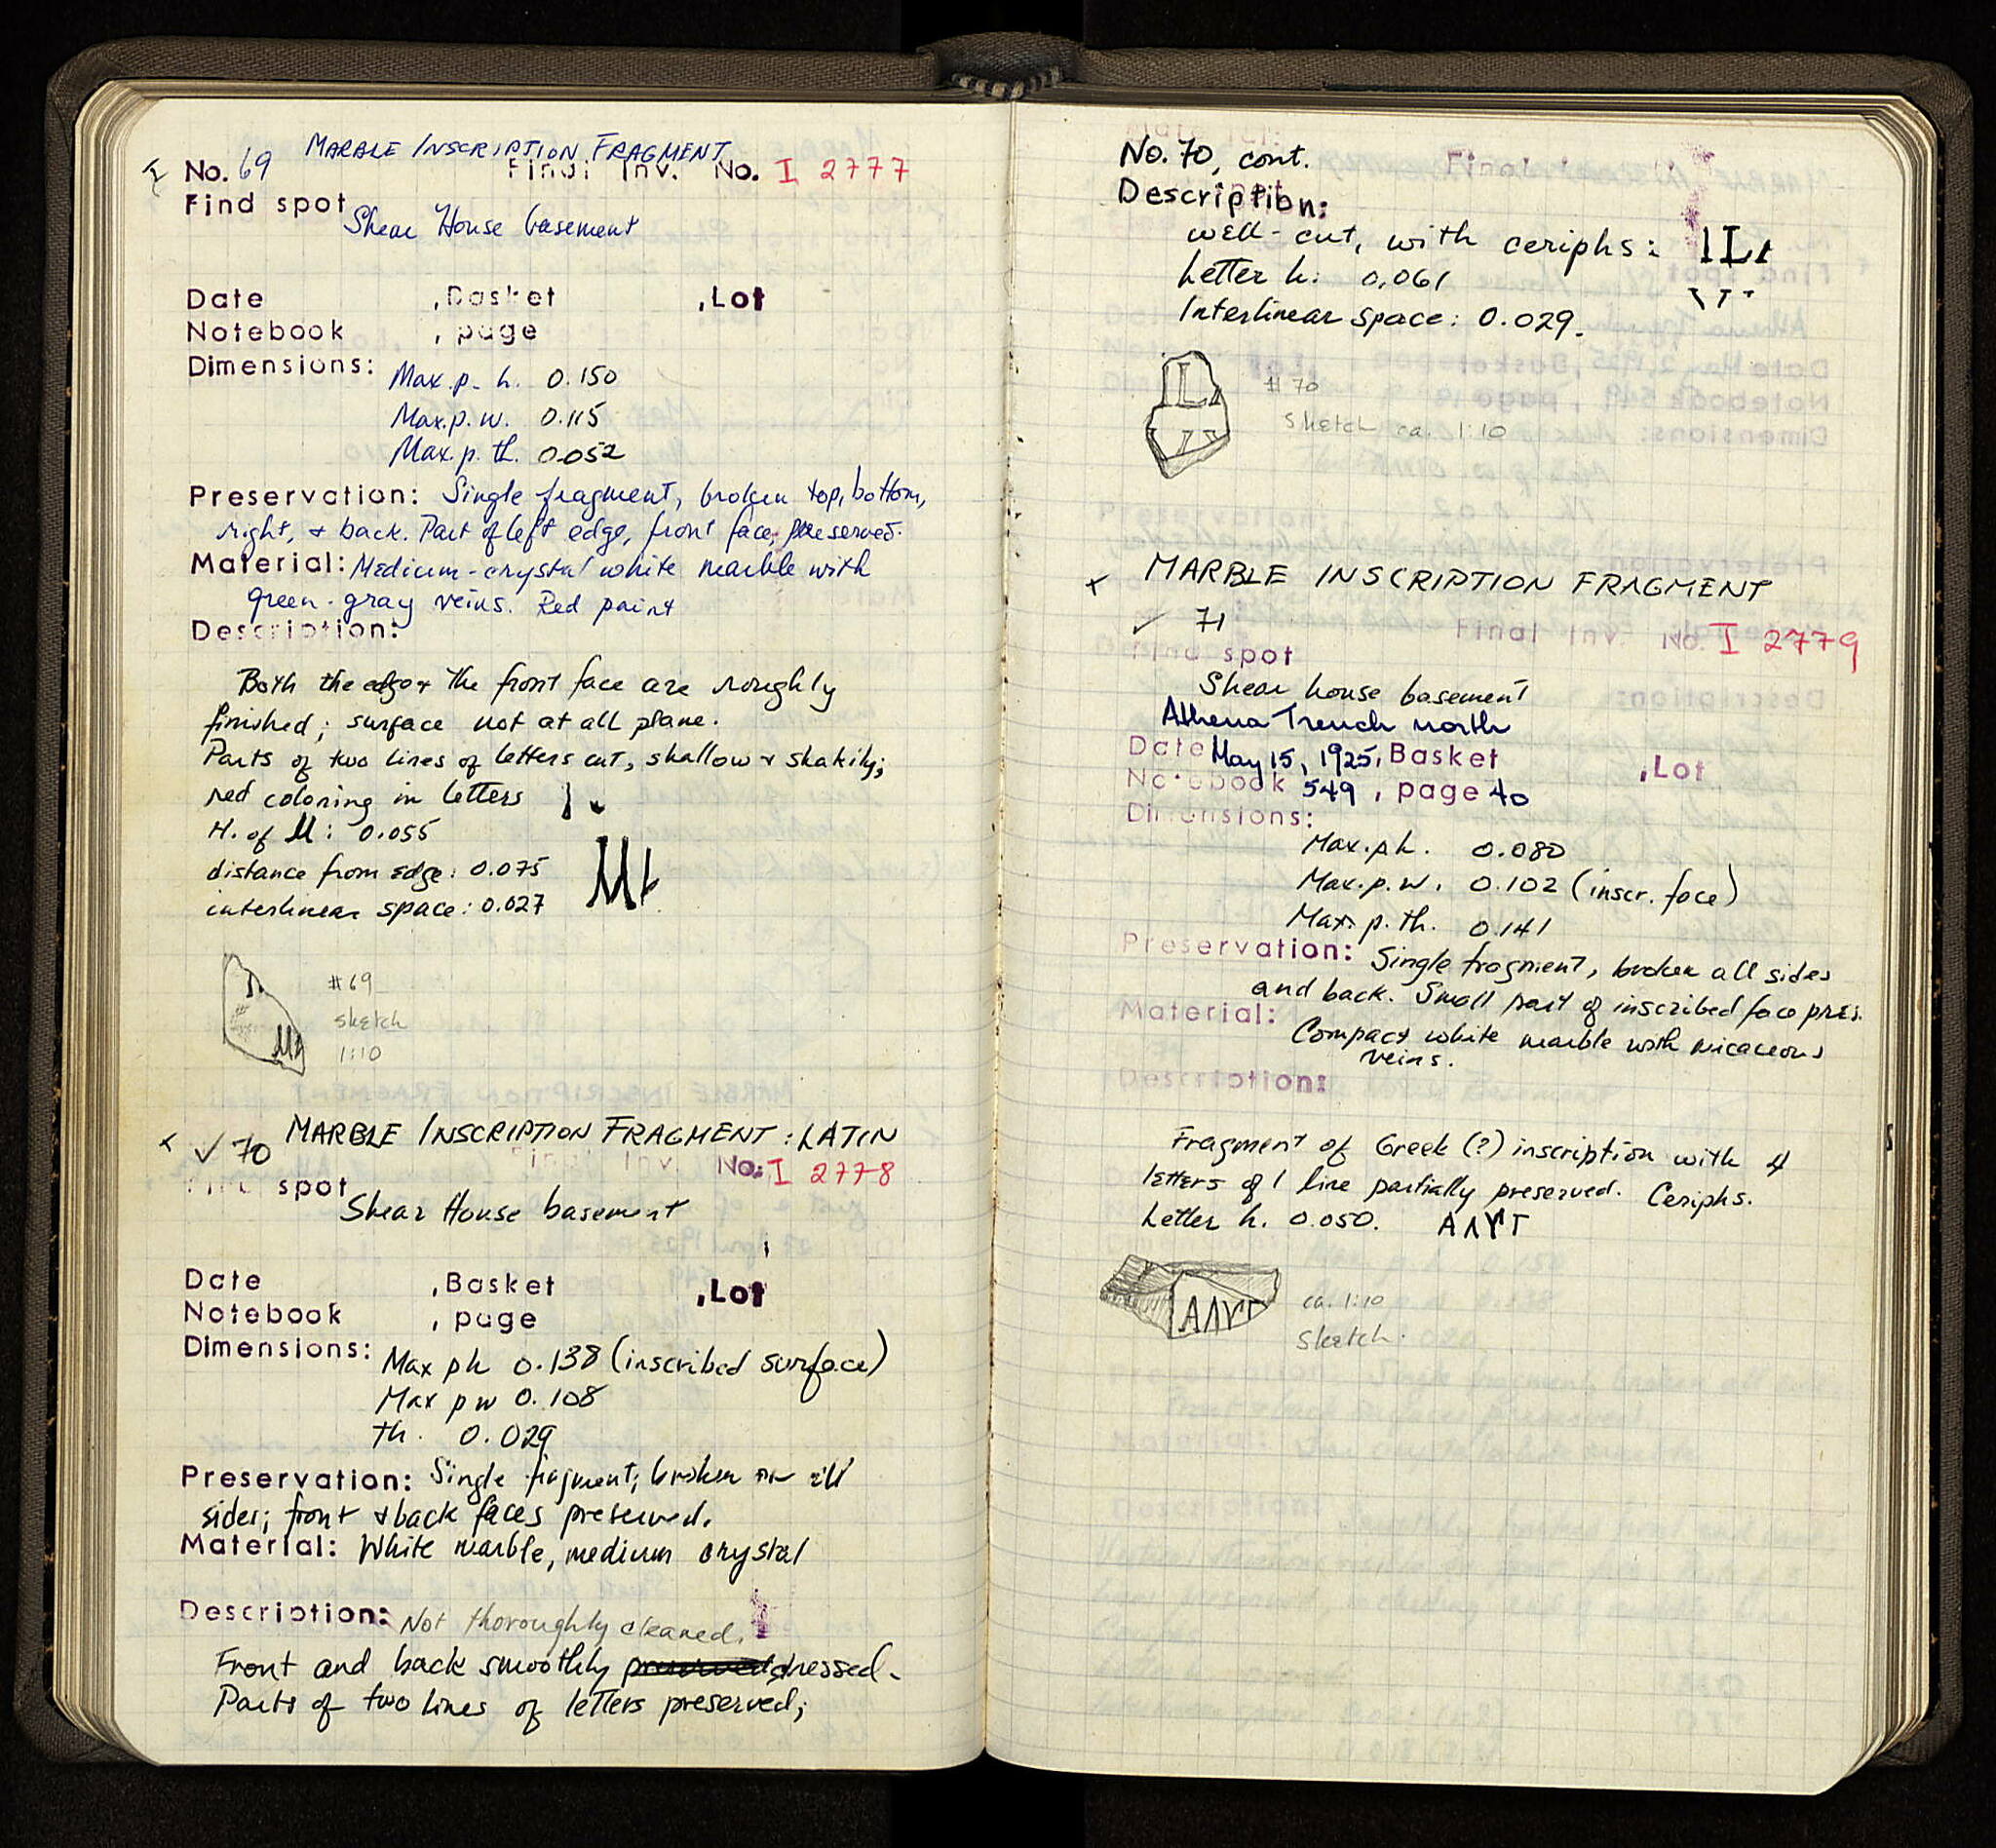 MARBLE INSCRIPTION FRAGMENT
No. 69 Final Inv. No. I 2777
Find spot
Shear House basement
Date , Basket , Lot
Notebook , page
Dimensions: Max. p. h. 0.150
Max. p. w. 0.115
Max. p. th. 0.052
Preservation: Single fragment, broken top, bottom,
right, & back. Part of left edge, front face, preserved.
Material: Medium-crystal white marble with
green-gray veins. Red paint
Description:
Both the edge & the front face are roughly
finished; surface not at all plane.
Parts of two lines of letters cut, shallow & shakily;
red coloring in letters
H. of M: 0.055
distance from edge: 0.075
interlinear space: 0.027
#69
sketch
1:10
MARBLE INSCRIPTION FRAGMENT: LATIN
x ✓ 70 Final Inv. No: I 2778
Find spot
Shear House basement
Date , Basket , Lot
Notebook , page
Dimensions: Max ph 0.138 (inscribed surface)
Max pw 0.108
th. 0.029
Preservation: Single fragment; broken on all
sides; front & back faces preserved.
Material: White marble, medium crystal
Description: Not thoroughly cleaned.
Front and back smoothly dressed.
Parts of two lines of letters preserved;
No. 70, cont. Final
Description:
well-cut, with ceriphs: ILA
Letter h: 0.061
Interlinear space: 0.029.
#70
sketch ca. 1:10
x MARBLE INSCRIPTION FRAGMENT
✓ 71 Final Inv. No. I 2779
Find spot
Shear house basement
Athena Trench north
Date May 15, 1925, Basket , Lot
Notebook 549, page 40
Dimensions:
Max. p. h. 0.080
Max. p. w. 0.102 (inscr. face)
Max. p. th. 0.141
Preservation: Single fragment, broken all sides
and back. Small part of inscribed face pres.
Material: Compact white marble with micaceous
veins.
Description:
Fragment of Greek (?) inscription with 4
letters of 1 line partially preserved. Ceriphs.
Letter h. 0.050. ΑΛΥΓ
ΑΛΥΓ
ca. 1:10
sketch.